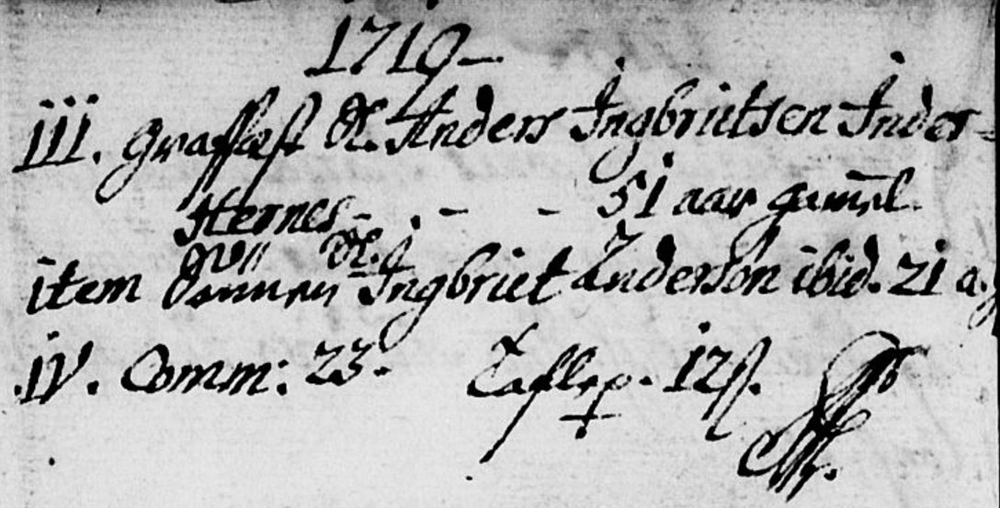 1719
iii. Graffæst Sl. Anders Ingbrietsen Inder-
Hernes - . - - 51 aar gamel.
Sl.
item Sönnen Ingbriet Anderson ibid. 21 a. g
iv. Comm: 23. Taflep. 12 ß.